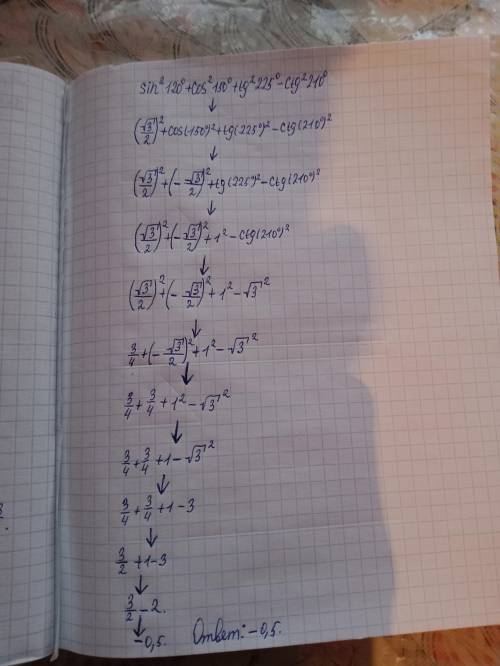 sin²120°+cos²150°+tg²225°-ctg²210°
↓
(√3/2)²+cos(150°)²+tg(225°)²-ctg(210°)²
↓
(√3/2)²+(-√3/2)²+tg(225°)²-ctg(210°)²
↓
(√3/2)²+(-√3/2)²+1²-ctg(210°)²
↓
(√3/2)²+(-√3/2)²+1²-√3²
↓
3/4+(-√3/2)²+1²-√3²
↓
3/4+3/4+1²-√3²
↓
3/4+3/4+1-√3²
↓
3/4+3/4+1-3
↓
3/2+1-3
↓
3/2-2.
↓
-0,5. Ответ: -0,5.